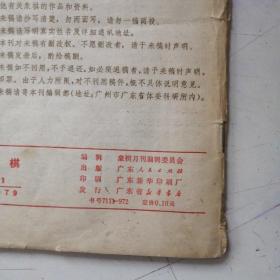 他有关象棋的作品和资料。
来稿请抄写清楚,勿两面写,请勿一稿两投。
来稿请写明真实姓名及详细通讯地址。
本刊对来稿有删改权,不愿删改者,请于来稿时声明。
来稿发表后,酌给稿酬。
来稿如不刊用,不予退还,如必须退稿者,请于来稿时声明。
由于人力所限,对不刊用稿件,恕不具体说明意见。
来稿请寄本刊编辑部(地址:广州市广东省体委科研所内)。
棋
编辑 象棋月刊编辑委员会
出版 广东人民出版社
印刷 广东新华印刷厂
发行 广东省新华书店
书号7111·972 定价0.18元
1
979